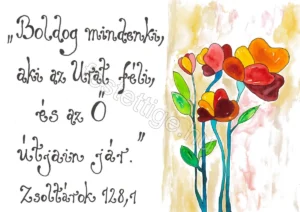 „Boldog mindenki,
aki az Urat féli,
és az Ő
útjain jár."
Zsoltárok 128,1